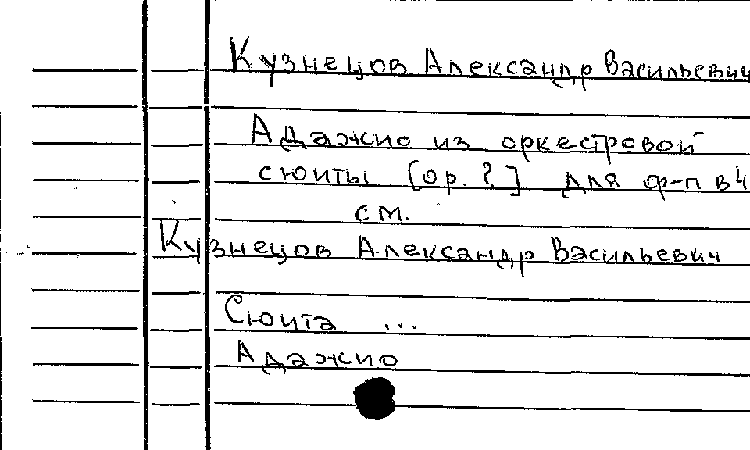 Кузнецов Александр Васильевич
Адажио из оркестровой
сюиты [ор. ?] для ф-п в 4
см.
Кузнецов Александр Васильевич
Сюита ...
Адажио